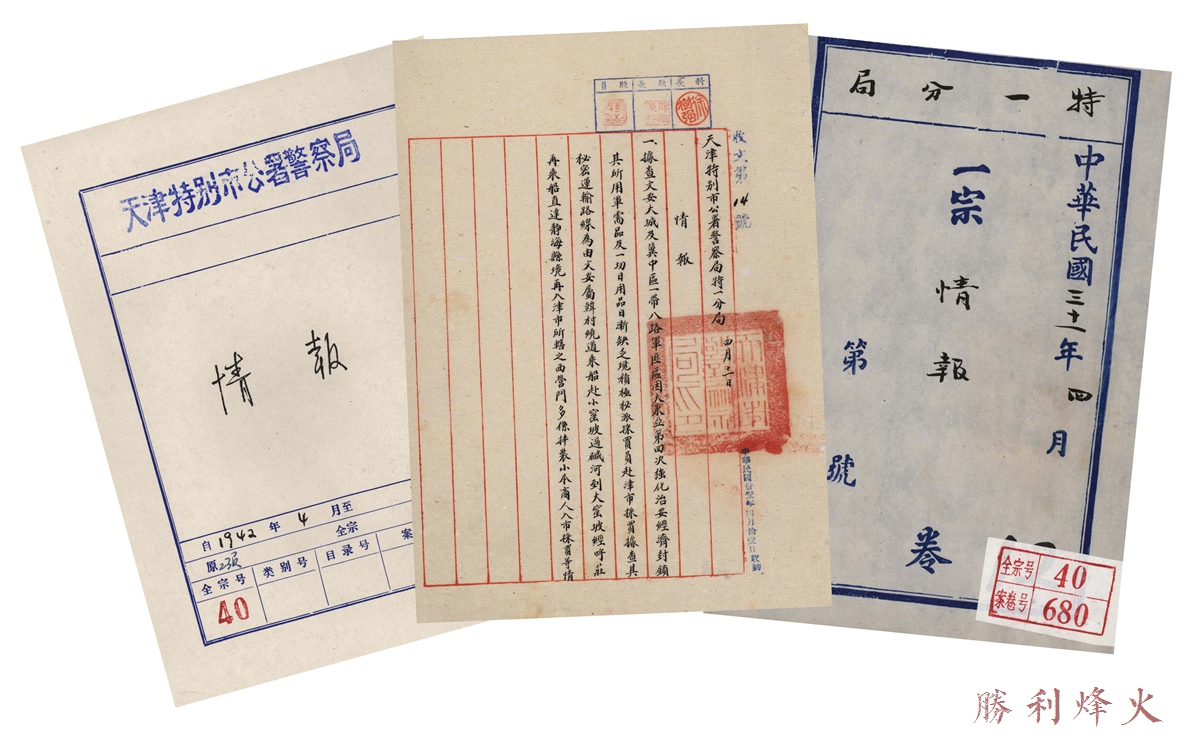 天津特别市公署警察局
情報
自1942年4月至
全宗
案
原2页
全宗号
类别号
目录号
40
科長
股長
股員
收文第14號
天津特别市公署警察局特一分局
情報
四月十一日
一、據查文安大城及冀中區一帶八路軍匪區因大東亞第四次強化治安經濟封鎖
其所用軍需品及一切日用品日漸缺乏現積極秘派採買員赴津市採買據查其
秘密運輸路線為由文安屬韓村繞道乘船赴小窰坡過碱河到大窰坡經吁莊
再乘船直達靜海縣境再入津市所轄之西營門多係拌裝小本商人入市採買等情
特一分局
中華民國三十一年四月
一宗情報
第號
卷
全宗号 40
案卷号 680
勝利烽火